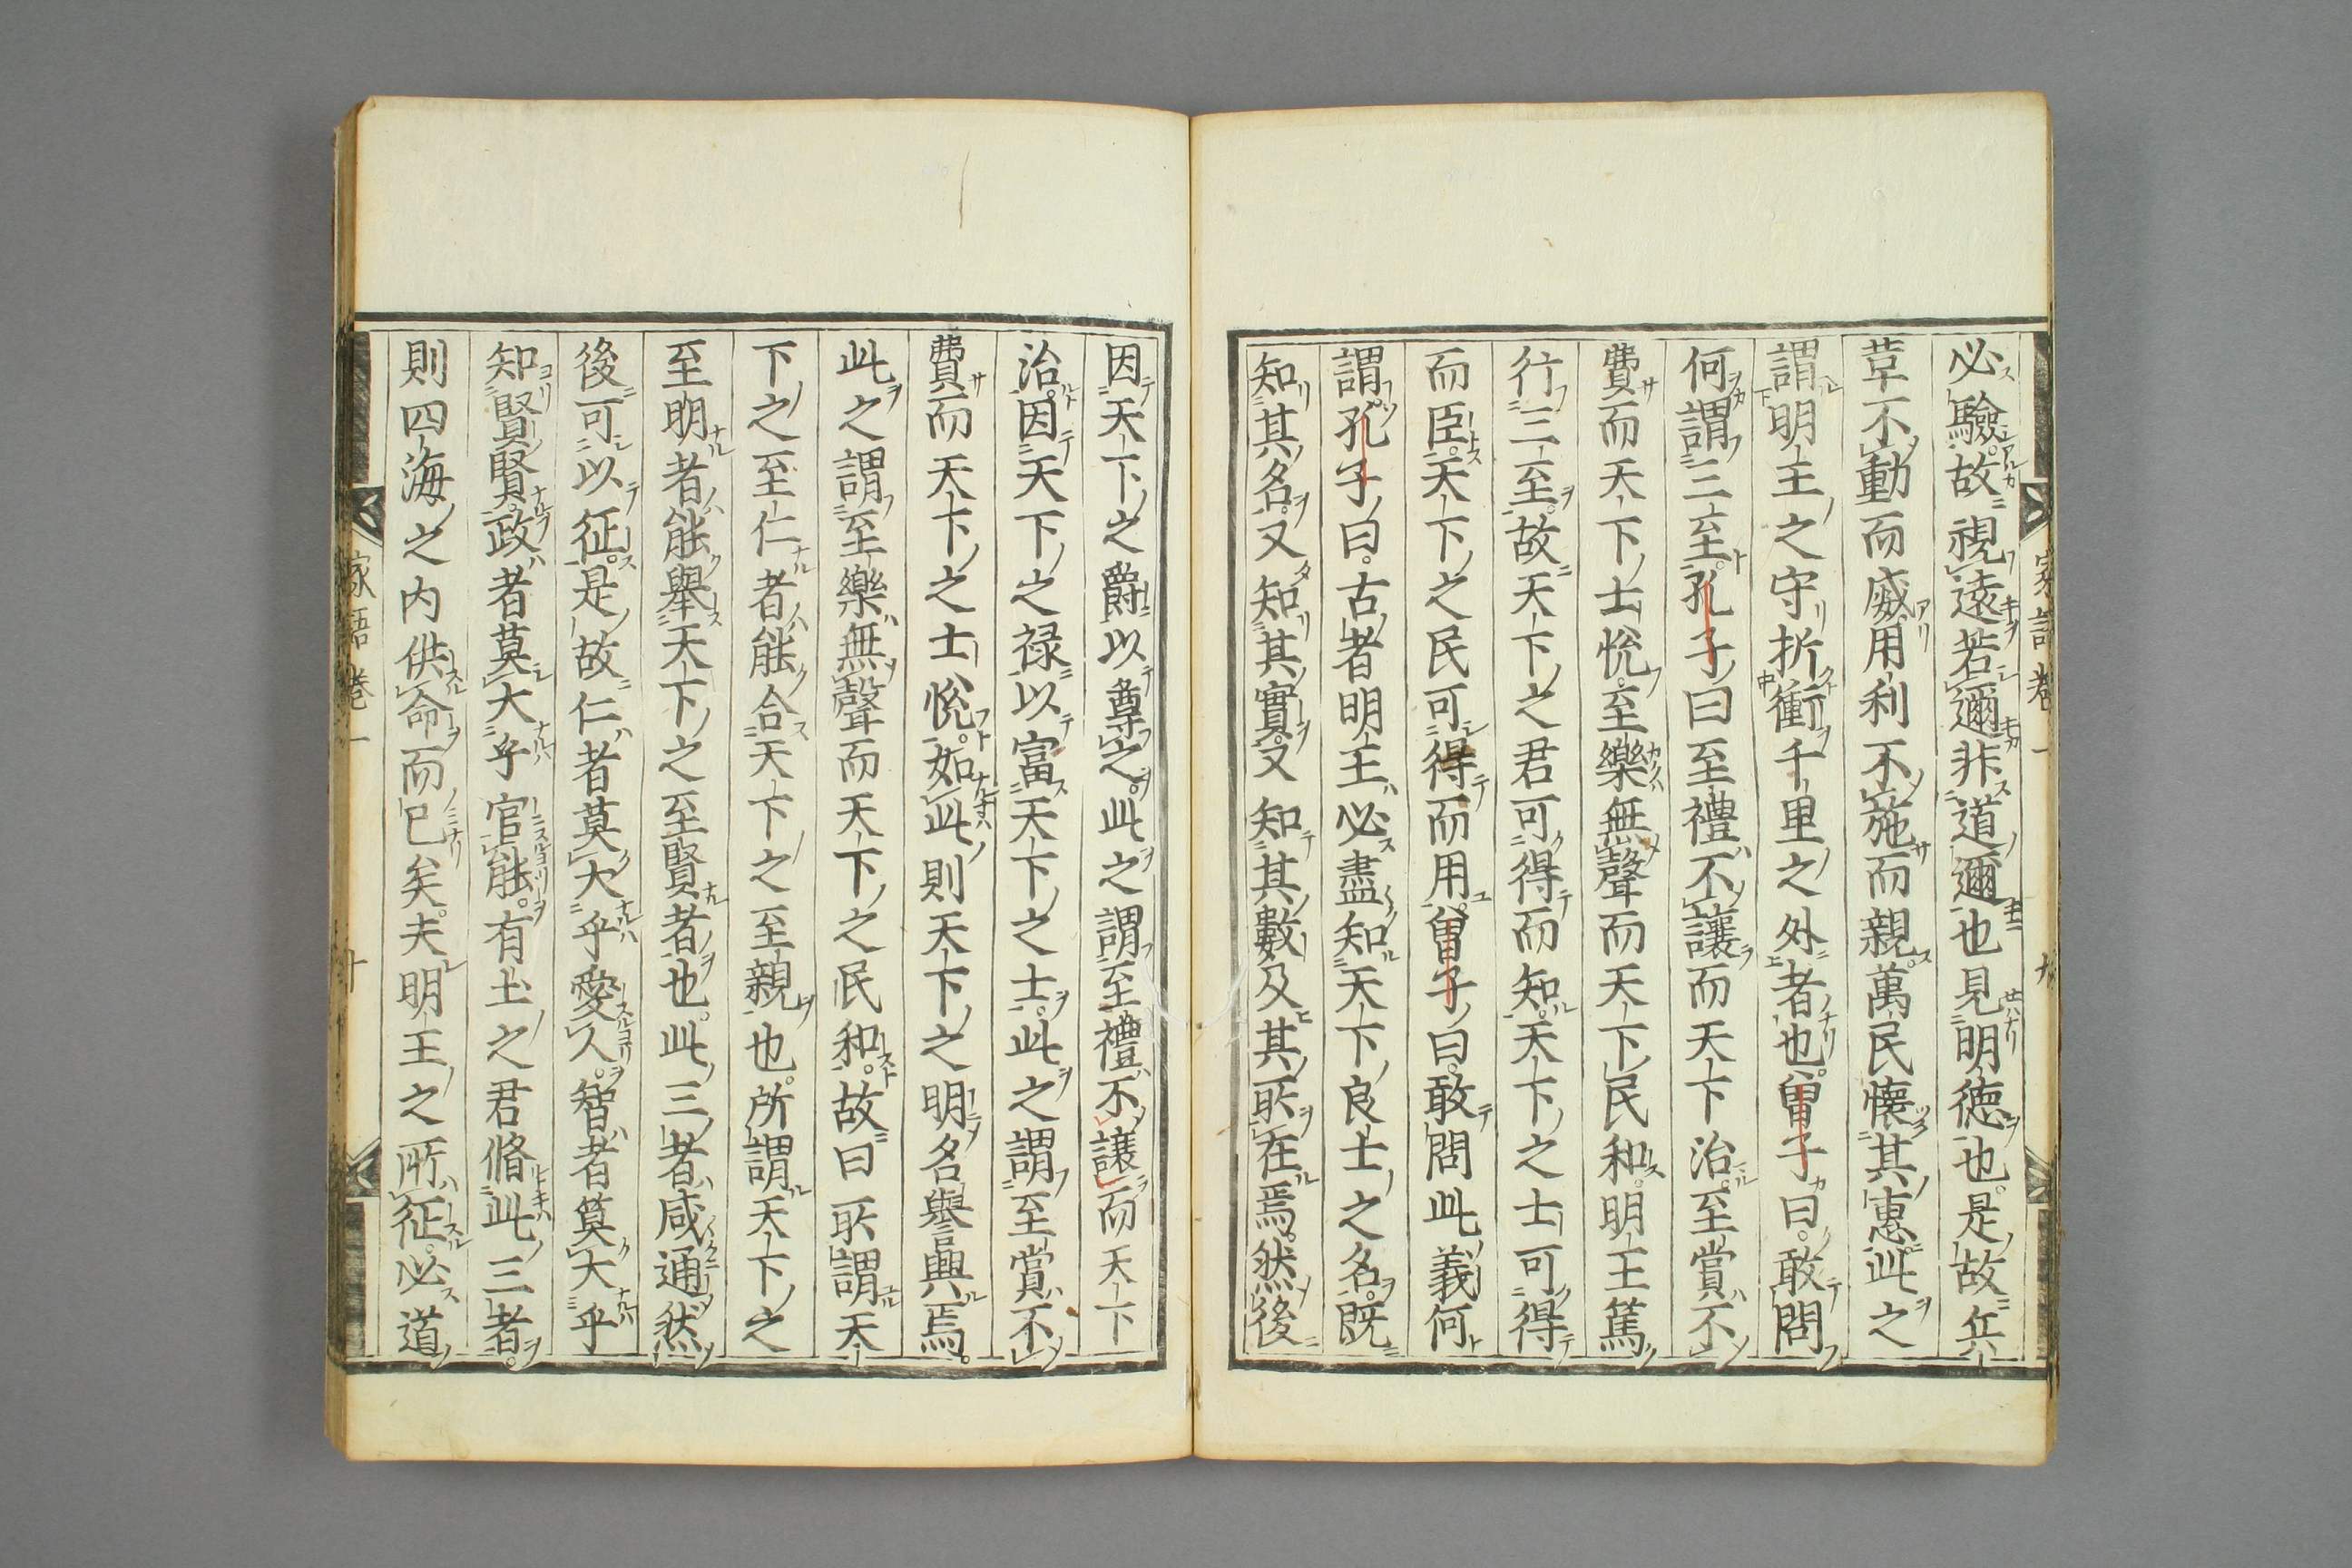 必驗故視遠若邇非道邇也見明德也是故兵
革不動而威用利不施而親萬民懷其惠此之
謂明王之守折衝千里之外者也曾子曰敢問
何謂三至孔子曰至禮不讓而天下治至賞不
費而天下士悅至樂無聲而天下民和明王篤
行三至故天下之君可得而知天下之士可得
而臣天下之民可得而用曾子曰敢問此義何
謂孔子曰古者明王必盡知天下良士之名既
知其名又知其實又知其數及其所在焉然後
因天下之爵以尊之此之謂至禮不讓而天下
治因天下之祿以富天下之士此之謂至賞不
費而天下之士悅如此則天下之明名譽興焉
此之謂至樂無聲而天下之民和故曰所謂天
下之至仁者能合天下之至親也所謂天下之
至明者能舉天下之至賢者也此三者咸通然
後可以征是故仁者莫大乎愛人智者莫大乎
知賢賢政者莫大乎官能有土之君脩此三者
則四海之內供命而已矣夫明王之所征必道
家語卷一
十